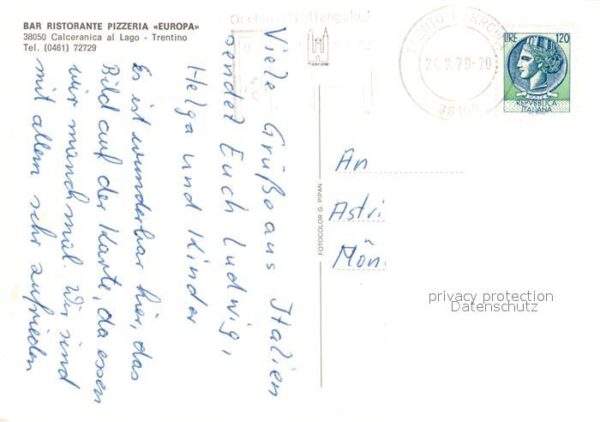 BAR RISTORANTE PIZZERIA «EUROPA»
38050 Calceranica al Lago - Trentino
Tel. (0461) 72729
Viele Grüße aus Italien
sendet Euch Ludwig,
Helga und Kinder
Es ist wunderbar hier, das
Bild auf der Karte, da essen
wir manchmal. Wir sind
mit allem sehr zufrieden
FOTOCOLOR G. PIPAN
TRENTO FERROVIA
38100
LIRE 120
REPVBBLICA
ITALIANA
An
Astri
Mön
privacy protection
Datenschutz